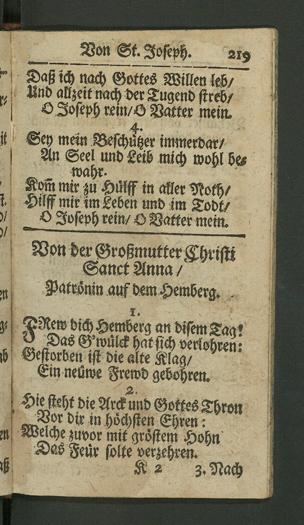 Von St. Joseph. 219
Daß ich nach Gottes Willen leb/
Und allzeit nach der Tugend streb/
O Joseph rein/ O Vatter mein.
4.
Sey mein Beschützer immerdar/
An Seel und Leib mich wohl be-
wahr.
Kom̃ mir zu Hülff in aller Noth/
Hilff mir im Leben und im Todt/
O Joseph rein/ O Vatter mein.
Von der Großmutter Christi
Sanct Anna/
Patrönin auf dem Hemberg.
1.
FRew dich Hemberg an disem Tag!
Das G'wülck hat sich verlohren:
Gestorben ist die alte Klag/
Ein neüwe Frewd gebohren.
2.
Hie steht die Arck und Gottes Thron
Vor dir in höchsten Ehren:
Welche zuvor mit gröstem Hohn
Das Feür solte verzehren.
K 2 3. Nach